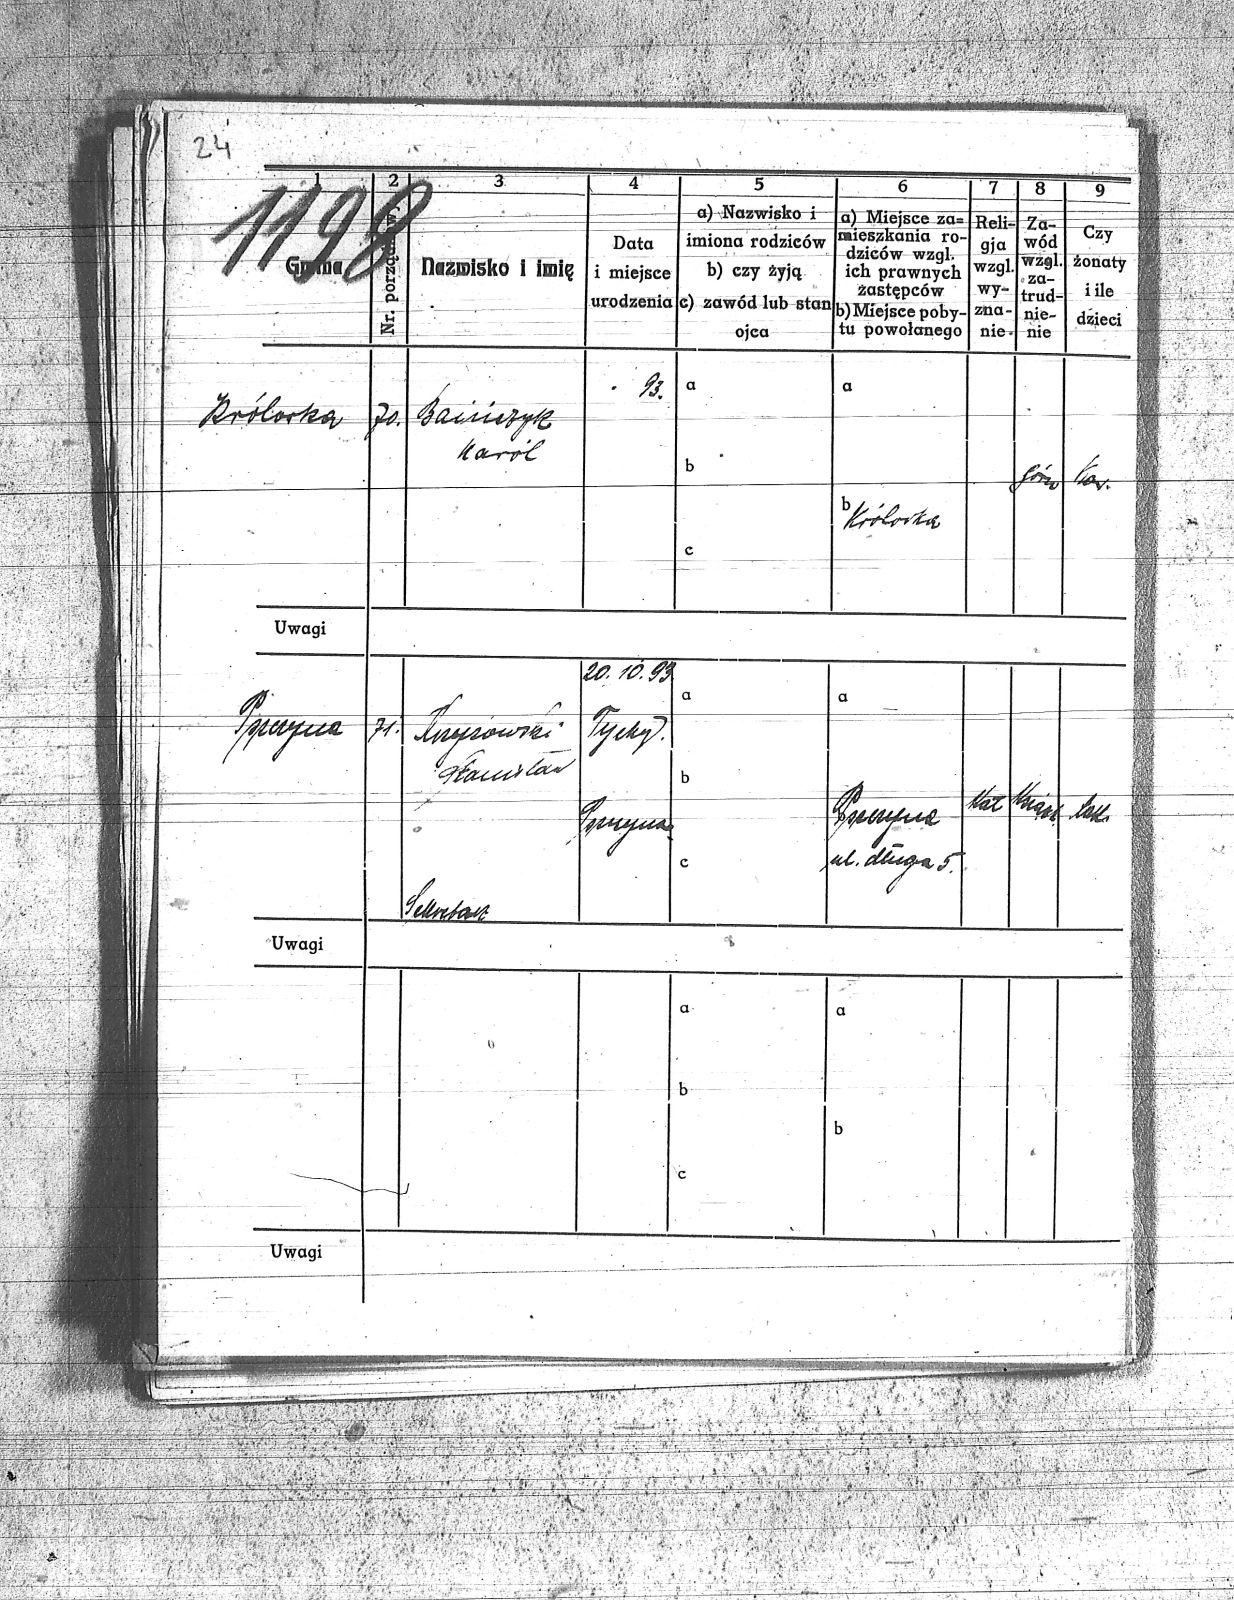 24
1198
1
2
3
4
5
6
7
8
9
Gmina
Nr. porządkowy
Nazwisko i imię
Data
i miejsce
urodzenia
a) Nazwisko i
imiona rodziców
b) czy żyją
c) zawód lub stan
ojca
a) Miejsce za=
mieszkania ro-
dziców wzgl.
ich prawnych
zastępców
b) Miejsce poby-
tu powołanego
Reli-
gja
wzgl.
wy-
zna-
nie
Za-
wód
wzgl.
za-
trud-
nie-
nie
Czy
żonaty
i ile
dzieci
93.
a
a
Królowka
70.
Bainczyk
Karól
b
górn
Kaw.
b
Królowka
c
Uwagi
20.10.93
a
a
Pszczyna
71.
Stanisław
Tychy
b
Pszczyna
Pszczyna
Kat
c
ul. długa 5.
Uwagi
a
a
b
b
c
Uwagi